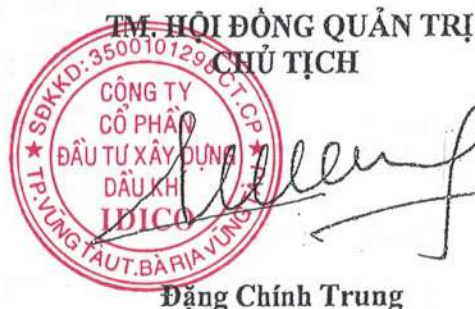 TM. HỘI ĐỒNG QUẢN TRỊ
CHỦ TỊCH
SĐKKD: 3500101298 CT.CP
CÔNG TY
CỔ PHẦN
ĐẦU TƯ XÂY DỰNG
DẦU KHÍ
IDICO
TP.VŨNG TÀU T.BÀ RỊA VŨNG
Đặng Chính Trung